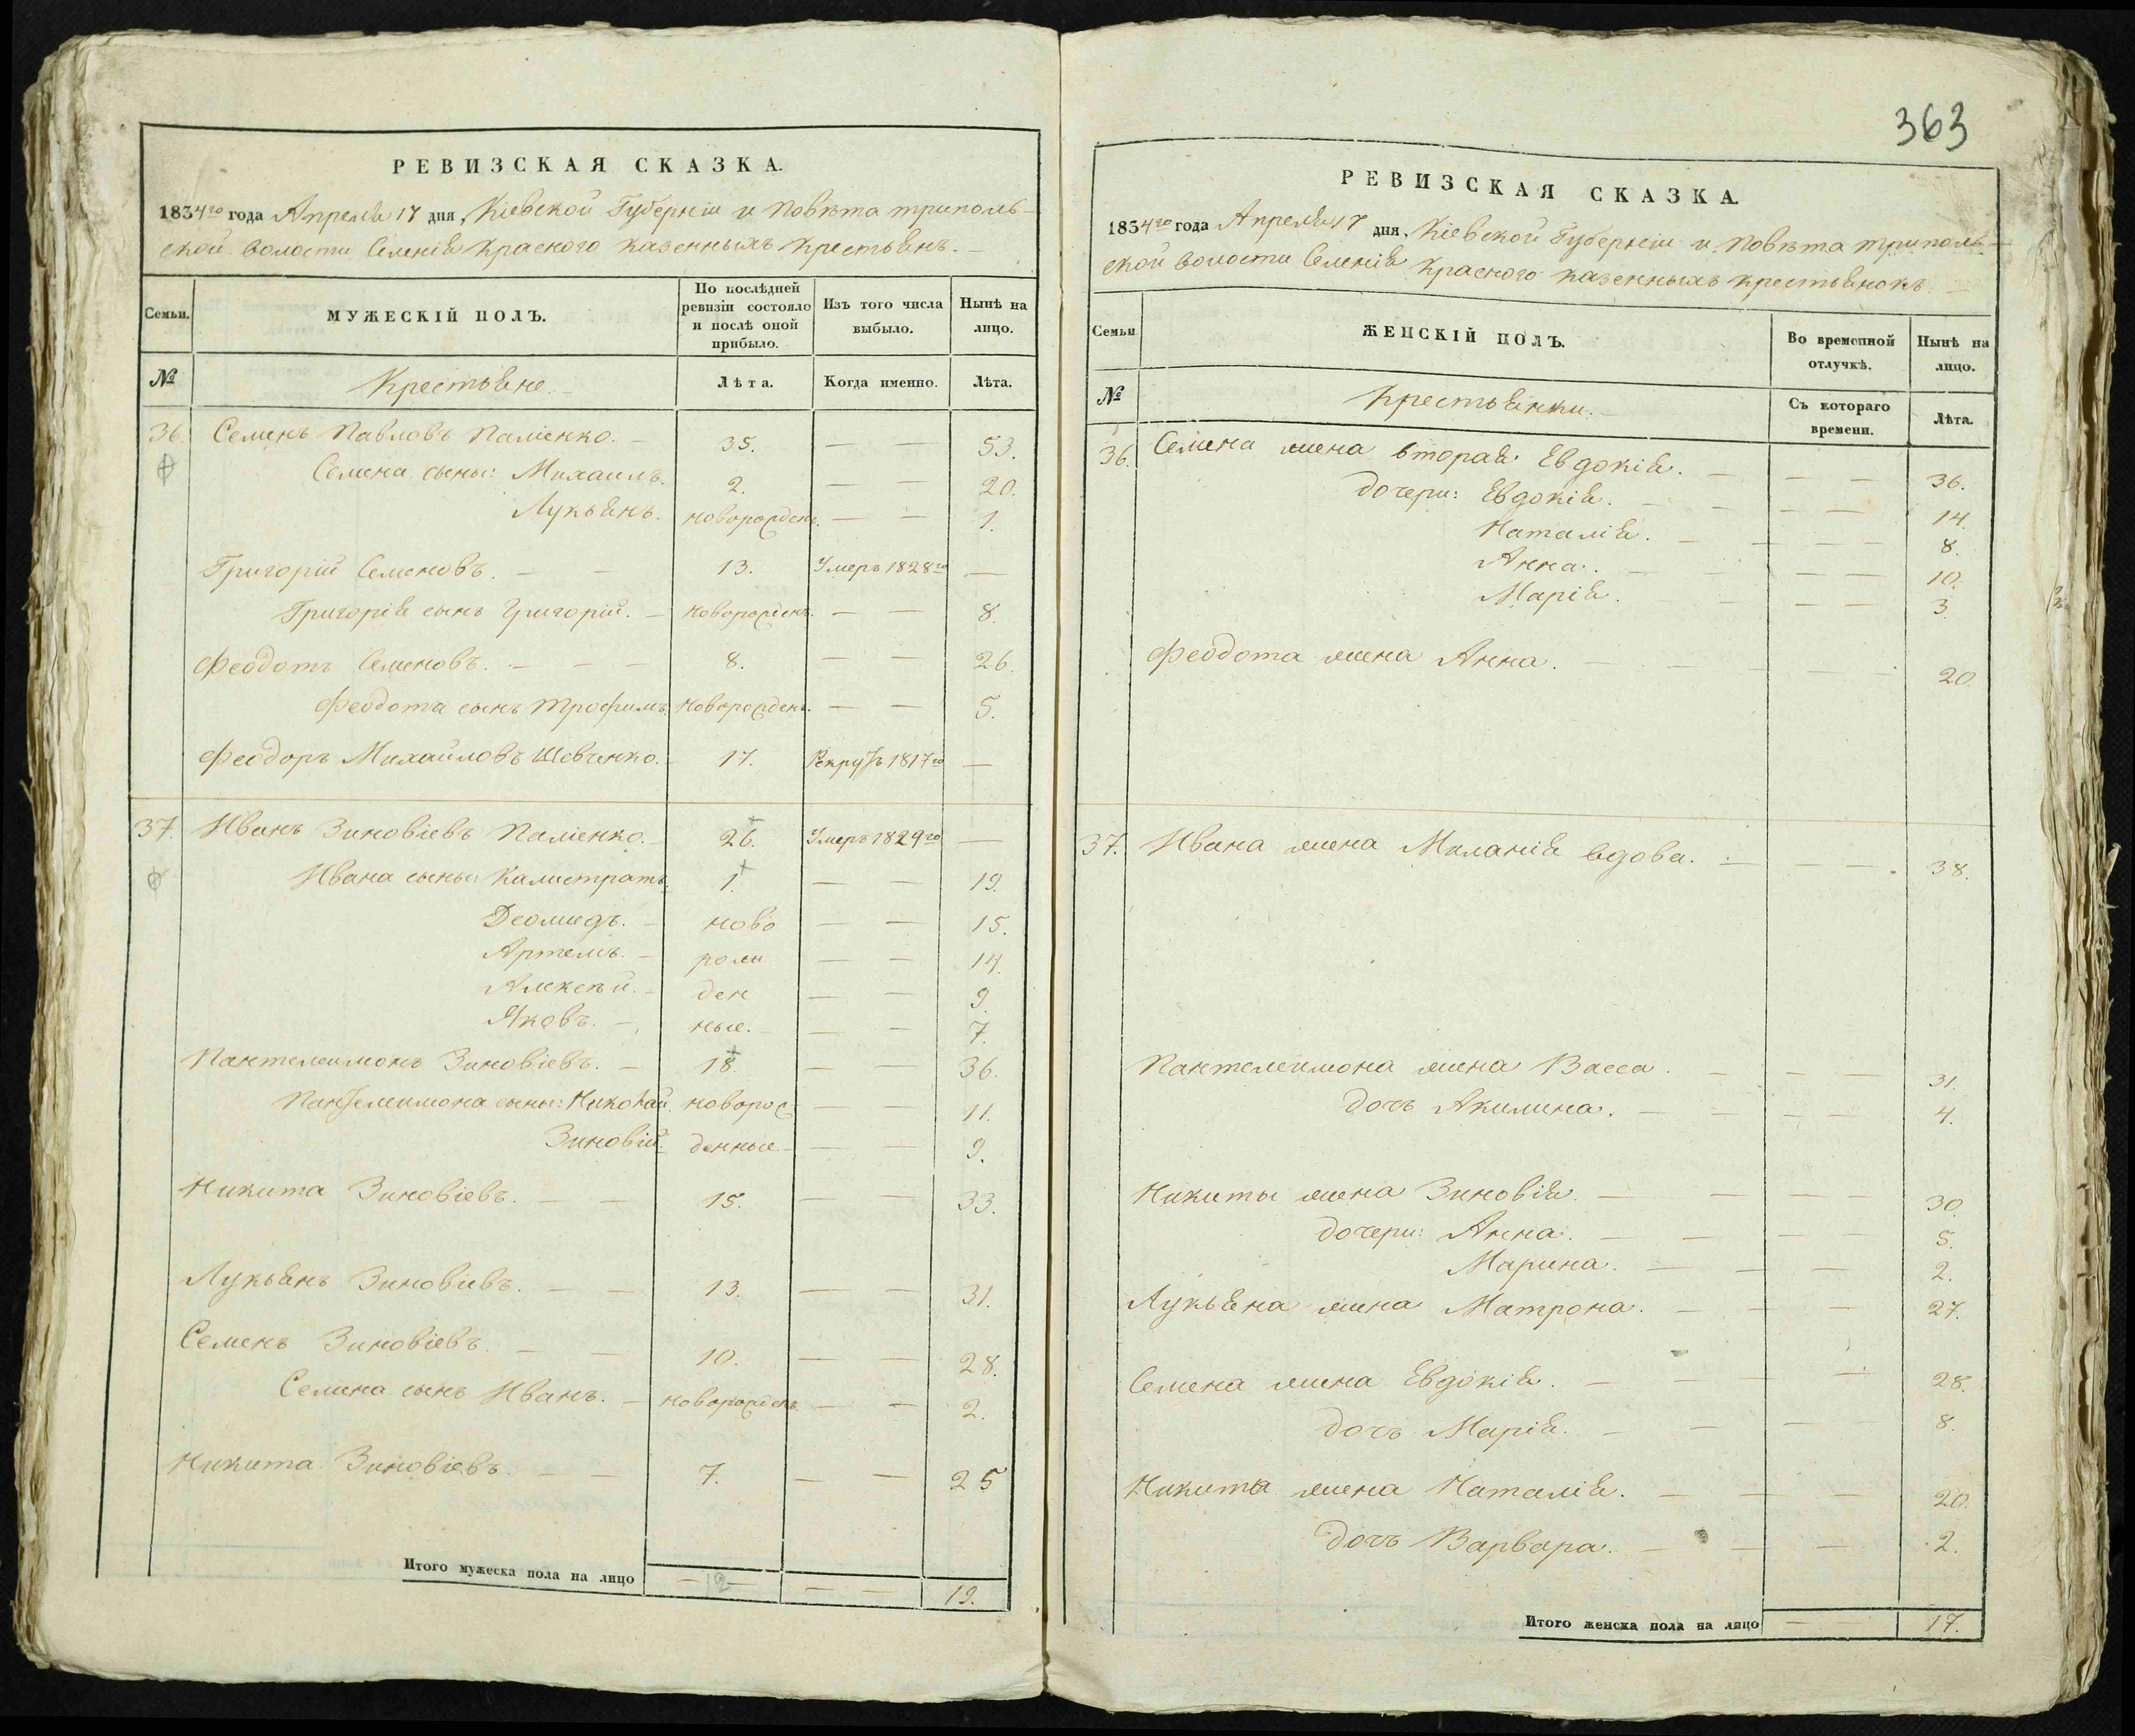 363
РЕВИЗСКАЯ СКАЗКА.
1834го года Апреля 17 дня, Кіевской Губерніи и Повѣта триполь-
ской волости Селенія Красного казенныхъ крестьянъ.
Семьи. МУЖЕСКІЙ ПОЛЪ. По послѣдней ревизіи состояло и послѣ оной прибыло. Изъ того числа выбыло. Нынѣ на лицо.
№ Крестьяне. Лѣта. Когда именно. Лѣта.
36. Семенъ Павловъ Паліенко. 35. — — 53.
Семена сыны: Михаилъ. 2. — — 20.
Лукьянъ. новорожден. — — 1.
Григорій Семеновъ. — — 13. Умеръ 1828го —
Григорія сынъ Григорій. — новорожден. — — 8.
Феодотъ Семеновъ. — — — 8. — — 26.
Феодота сынъ Трофимъ. новорожден. — — 5.
Феодоръ Михайловъ Шевченко. 17. Рекрутъ 1817го —
37. Иванъ Зиновіевъ Паліенко. — 26. Умеръ 1829го —
Ивана сыны: Калистратъ. 1. — — 19.
Деомидъ. — ново — — 15.
Артемъ. — рож — — 14.
Алексѣй. — ден — — 9.
Яковъ. — ные. — — 7.
Пантелеимонъ Зиновіевъ. — 18. — — 36.
Пантелеимона сыны: Николай. новорож — — 11.
Зиновій. денные — — 9.
Никита Зиновіевъ. — — 15. — — 33.
Лукьянъ Зиновіевъ. — — 13. — — 31.
Семенъ Зиновіевъ. — — 10. — — 28.
Семена сынъ Иванъ. — новорожден. — — 2.
Никита Зиновіевъ. — — 7. — — 25
Итого мужеска пола на лицо — 12 — — — 19.
РЕВИЗСКАЯ СКАЗКА.
1834го года Апреля 17 дня, Кіевской Губерніи и Повѣта триполь-
ской волости Селенія Красного казенныхъ крестьянокъ.
Семьи. ЖЕНСКІЙ ПОЛЪ. Во временной отлучкѣ. Нынѣ на лицо.
№ Крестьянки. — Съ котораго времени. Лѣта.
36. Семена жена вторая Евдокія. — — — 36.
дочери: Евдокія. — — — — 14.
Наталія. — — — — 8.
Анна. — — — — 10.
Марія. — — — 3.
Феодота жена Анна. — — — — — 20.
37. Ивана жена Миланія вдова. — — — 38.
Пантелеимона жена Васса. — — — 31.
дочь Акилина. — — — — 4.
Никиты жена Зиновія. — — — 30.
дочери: Анна. — — — — 5.
Марина. — — — 2.
Лукьяна жена Матрона. — — — 27.
Семена жена Евдокія. — — — 28.
дочь Марія. — — — — 8.
Никиты жена Наталія. — — — 20.
дочь Варвара. — — — 2.
Итого женска пола на лицо — — 17.